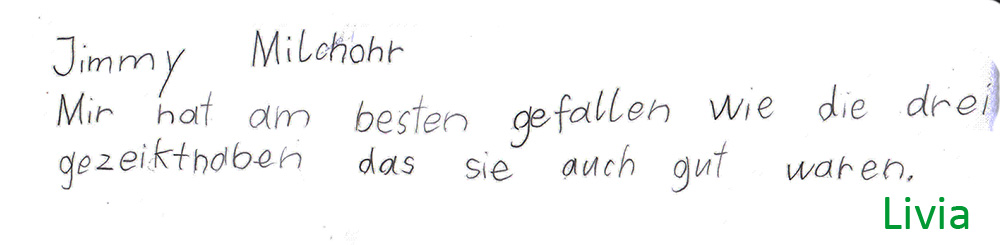 Jimmy Milchohr
Mir hat am besten gefallen wie die drei
gezeikthaben das sie auch gut waren.
Livia